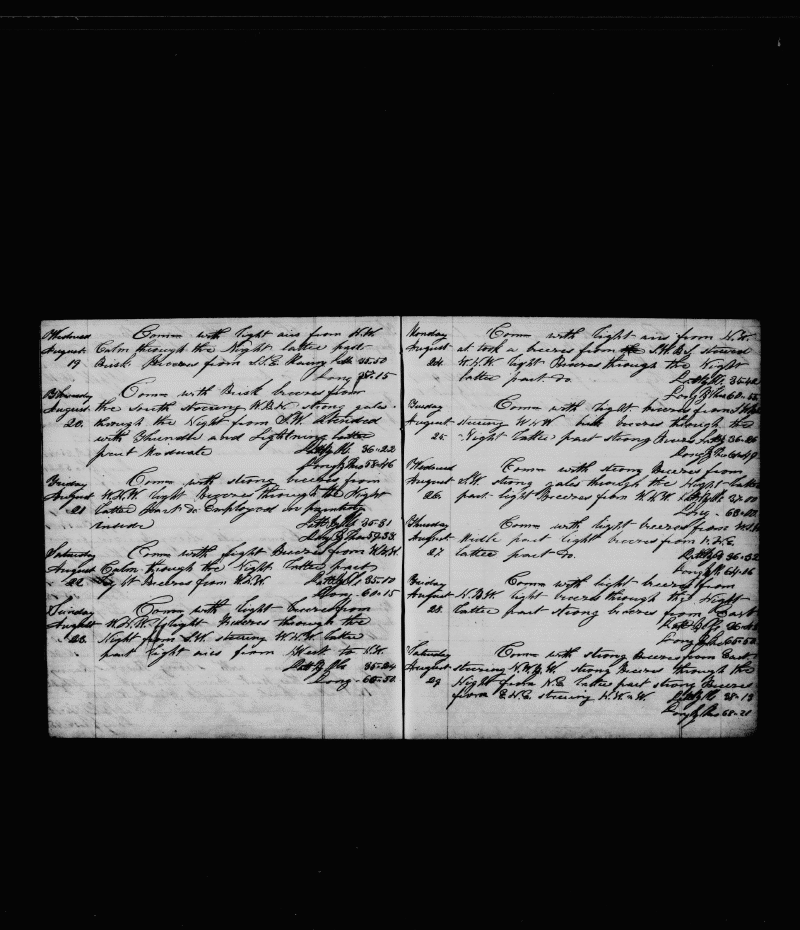 Wednesd Comm with light airs from N.W
August Calm through the Night latter part
19 Brisk Breezes from S.E. Rainy Latt 35-50
Long 58-15
Thursday Comm with Brisk breezes from
August the South Steering W.B.N strong gales
20 through the Night from S.W. attended
with Thunder and Lightning latter
part Moderate Latt by Ob 36-22
Long by Chro 58-46
Friday Comm with strong breezes from
August W.N.W light Breezes through the Night
21 latter part do Employed in painting
inside Latt by Ob 35-31
Long by Chro 59-33
Saturday Comm with light Breezes from W.N.W
August Calm through the Night latter part
22 light Breezes from Latt by Ob 35-10
Long 60-15
Sunday Comm with light breezes from
August light Breezes through the
23 Night from S.W. steering W.N.W latter
part light airs from West to N.W.
Latt by Obs 35-24
Long 60-50
Monday Comm with light airs from N.W.
August at took a breeze from the steered
24 W.N.W light Breezes through the Night
latter part do Latt by Ob 35-42
Long by Chro 62-55
Tuesday Comm with light breezes from
August steering W.N.W breezes through the
25 Night latter part strong Breezes Latt by 36-26
Long by Chro
Wednesd Comm with strong Breezes from
August S.W. strong gales through the Night latter
26 part light Breezes from W.N.W Latt by Ob 37-00
Long 63-
Thursday Comm with light breezes from
August Middle part light breezes from
27 latter part do. Latt by Ob 36-32
Long by Ch 64-16
Friday Comm with light breezes from
August N.B.W light breezes through the Night
28 latter part strong breezes from East
Latt by Ob 36-
Long by Chro 65-50
Saturday Comm with strong Breezes from East
August steering N.W.B.W. strong Breezes through the
29 Night from N.E. latter part strong Breezes
from E.N.E steering N.W.B.W. Latt by Ob 38-13
Long by Chro 68-21